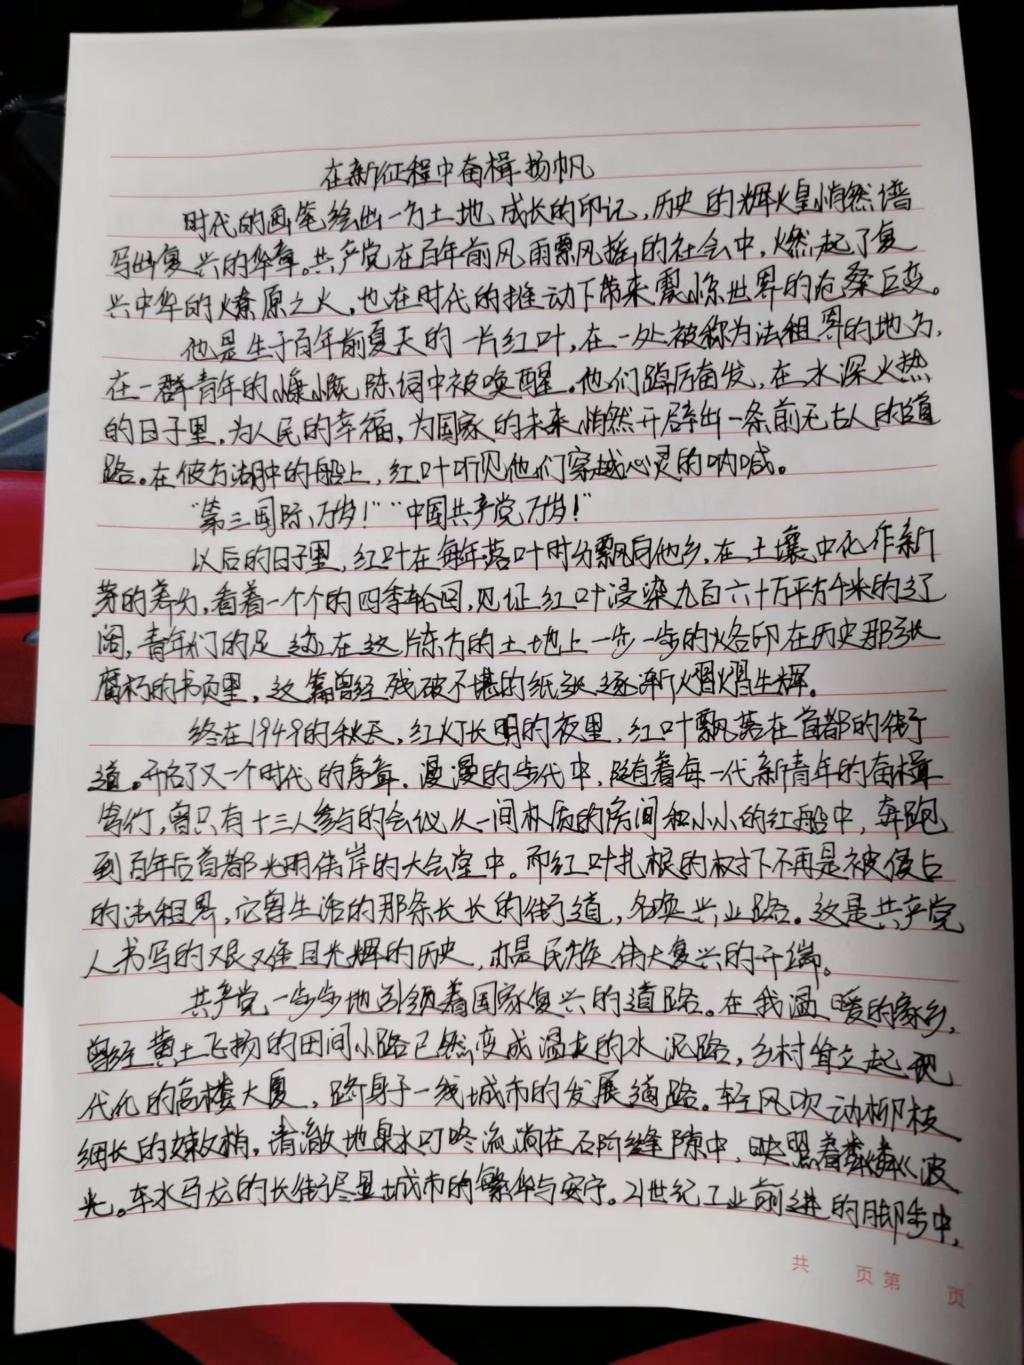 在新征程中奋楫扬帆
时代的画笔绘出一方土地成长的印记,历史的辉煌悄然谱
写出复兴的华章。共产党在百年前风雨飘风摇的社会中,燃起了复
兴中华的燎原之火,也在时代的推动下带来震惊世界的沧桑巨变。
他是生于百年前夏天的一片红叶,在一处被称为法租界的地方,
在一群青年的慷慨陈词中被唤醒。他们踔厉奋发,在水深火热
的日子里,为人民的幸福,为国家的未来悄然开辟出一条前无古人的道
路。在彼方湖中的船上,红叶听见他们穿越心灵的呐喊。
“第三国际万岁!”“中国共产党万岁!”
以后的日子里,红叶在每年落叶时分飘向他乡,在土壤中化作新
芽的养分,看着一个个的四季轮回,见证红叶浸染九百六十万平方千米的辽
阔,青年们的足迹在这片东方的土地上一步一步的烙印在历史那张
腐朽的书页里,这篇曾经残破不堪的纸张逐渐熠熠生辉。
终在1949的秋天,红灯长明的夜里,红叶飘落在首都的街
道。开启了又一个时代的序章。漫漫的步代中,随着每一代新青年的奋楫
笃行,曾只有十三人参与的会议从一间朴质的房间和小小的红船中,奔跑
到百年后首都光明伟岸的大会堂中。而红叶扎根的树下不再是被侵占
的法租界,它曾生活的那条长长的街道,名唤兴业路。这是共产党
人书写的艰难且光辉的历史,亦是民族伟大复兴的开端。
共产党一步步地引领着国家复兴的道路。在我温暖的家乡,
曾经黄土飞扬的田间小路已然变成温良的水泥路,乡村耸立起现
代化的高楼大厦,跻身于一线城市的发展道路。轻风吹动柳枝
细长的嫩梢,清澈地泉水叮咚流淌在石阶缝隙中,映照着粼粼波
光。车水马龙的长街尽显城市的繁华与安宁。21世纪工业前进的脚步中,
共 页 第 页